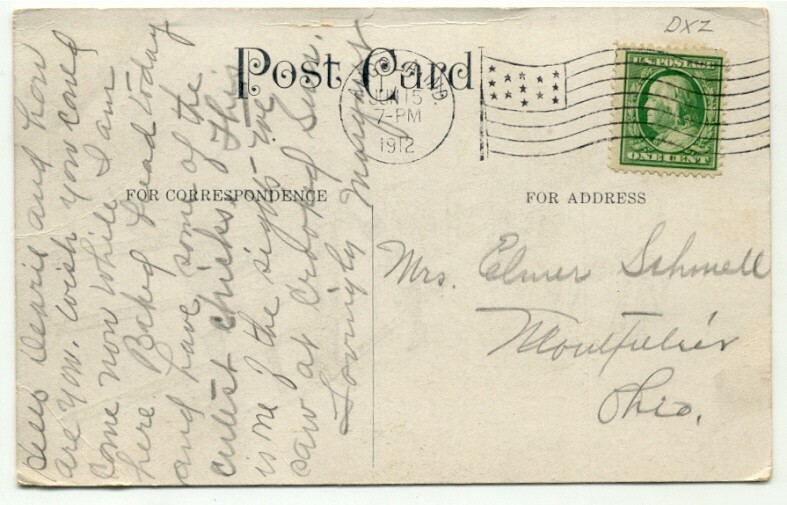 DXZ
Post Card
JUN 15
7-PM
1912
U.S. POSTAGE
ONE CENT
FOR CORRESPONDENCE
FOR ADDRESS
Dearie and how
are you. Wish you could
come now while I am
here. Baked bread today
and have some of the
cutest chicks. This
is one of the sights we
saw at Crooked Swim.
Lovingly Margaret
Mrs. Elmer Schnell
Montpelier
Ohio.